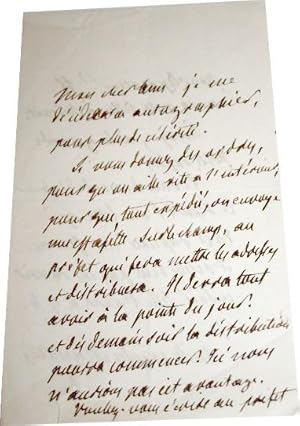 mon cher ami je me
décide à autographier,
pour plus de célérité.
Si vous donnez des ordres,
pour qu'on aille vite à l'intérieur,
pour que tout expédié, on envoye
une estafette sur le champ, au
préfet qui fera mettre les adresses
et distribuera. Il devra tout
avoir à la pointe du jour.
et dès demain soir la distribution
pourra commencer. Ici nous
n'aurions pas cet avantage.
Voulez-vous écrire au préfet